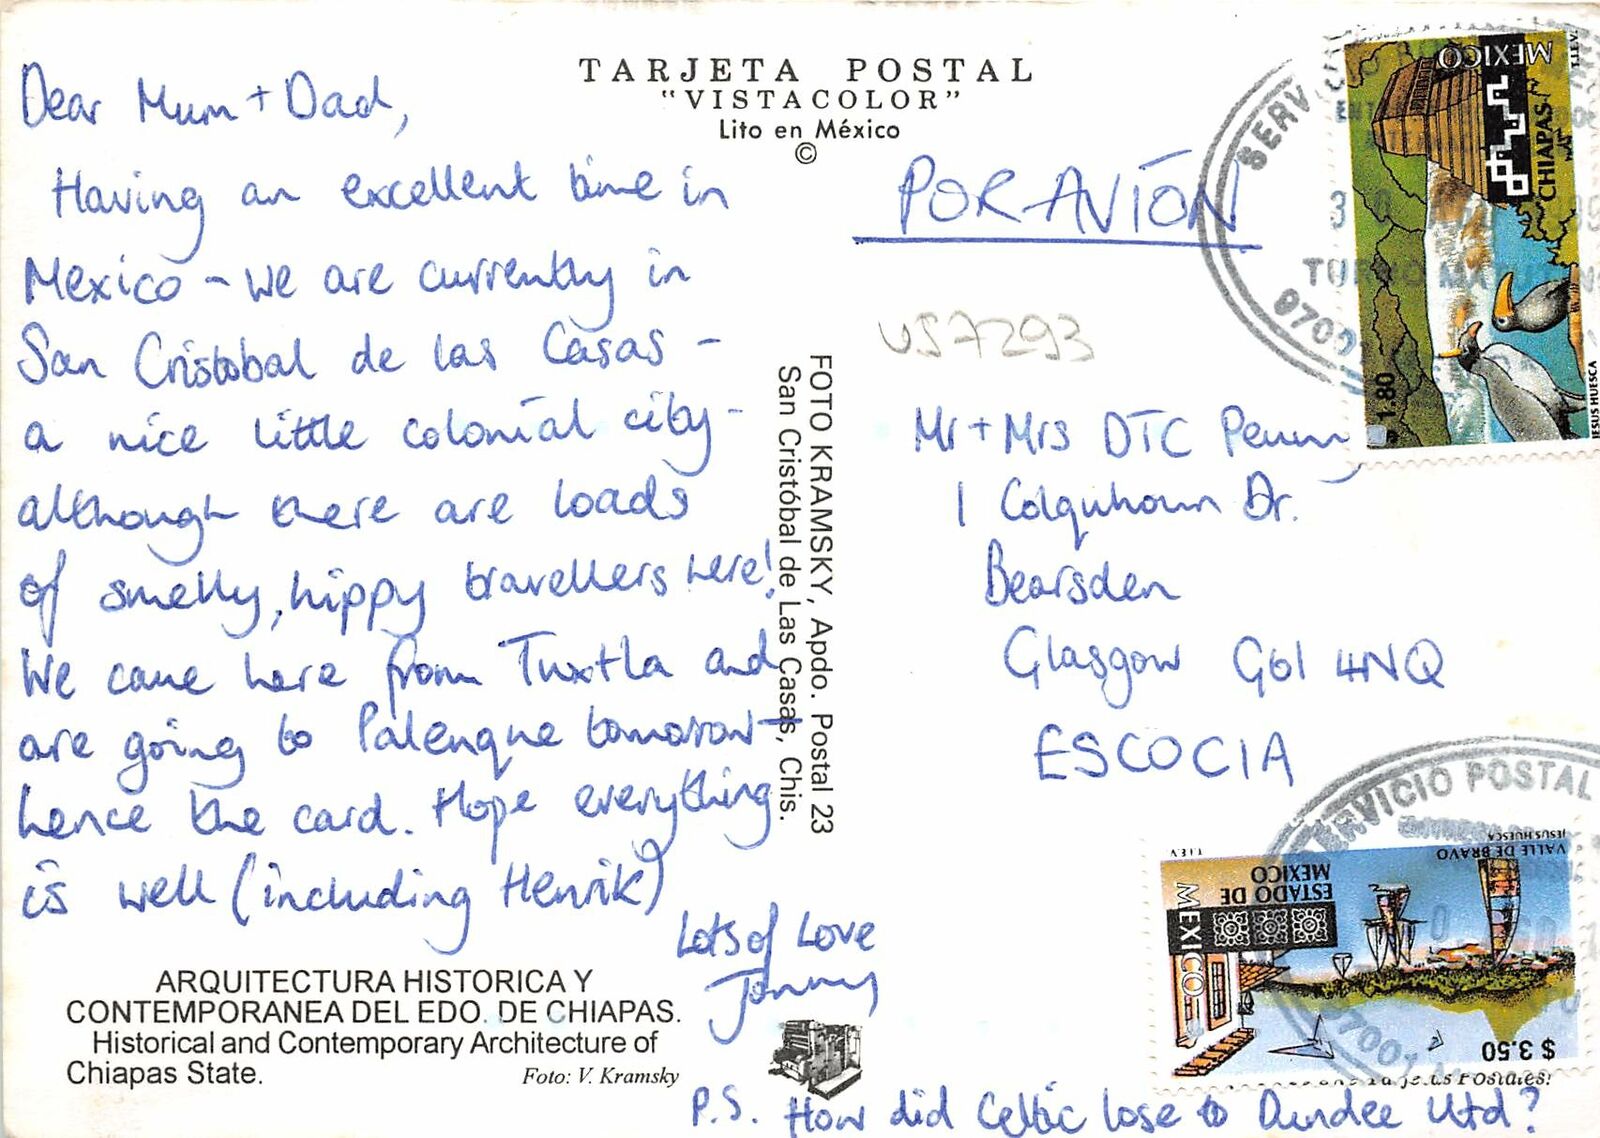 TARJETA POSTAL
"VISTACOLOR"
Lito en México
©
Dear Mum + Dad,
Having an excellent time in
Mexico - we are currently in
San Cristobal de las Casas -
a nice little colonial city -
although there are loads
of smelly, hippy travellers here!
We came here from Tuxtla and
are going to Palenque tomorrow -
hence the card. Hope everything
is well (including Henrik)
Lots of Love
Jonny
P.S. How did Celtic lose to Dundee Utd?
ARQUITECTURA HISTORICA Y
CONTEMPORANEA DEL EDO. DE CHIAPAS.
Historical and Contemporary Architecture of
Chiapas State.
Foto: V. Kramsky
FOTO KRAMSKY, Apdo. Postal 23
San Cristóbal de Las Casas, Chis.
POR AVIÓN
US7293
Mr + Mrs DTC Penny
1 Colquhoun Dr.
Bearsden
Glasgow G61 4NQ
ESCOCIA
MEXICO
CHIAPAS
T.I.E.V.
1.80
JESUS HUESCA
SERV
9700
SERVICIO POSTAL
9700
T.I.E.V.
MEXICO
ESTADO DE
MEXICO
VALLE DE BRAVO
JESUS HUESCA
$ 3.50
Tarjetas Postales!